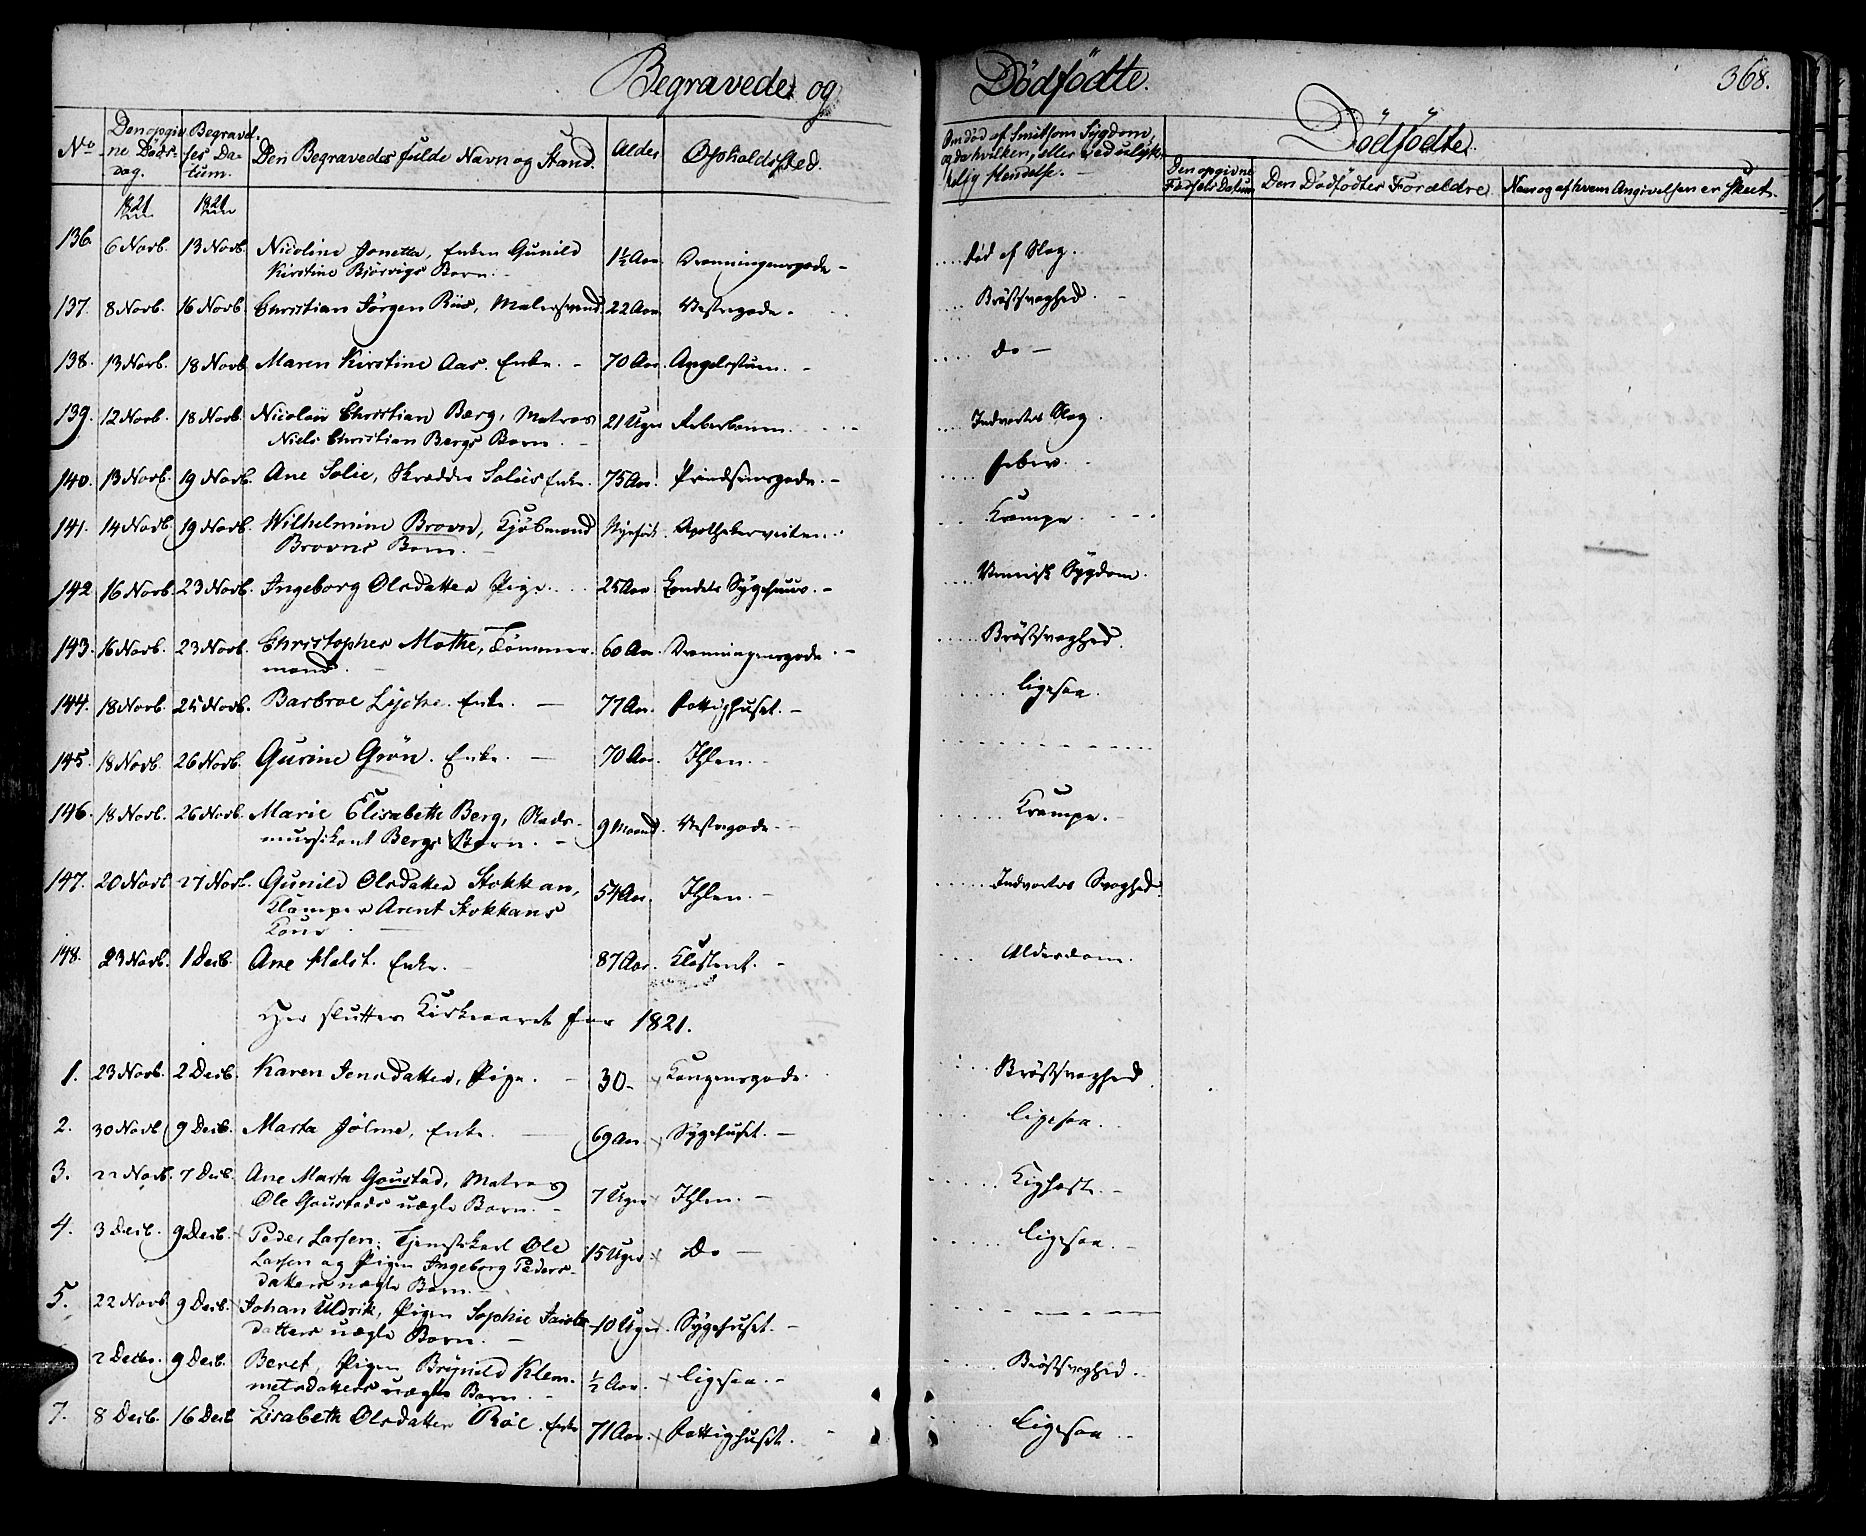 Begravede og Dødfødte. 368.
No Den opgivne Døds-Dag. Begravelses Datum. Den Begravedes fulde Navn og Stand. Alder Opholdssted. Om død af Smitsom Sygdom, og da hvilken, eller ved ulykkelig Hendelse. Dødfødte.
Den opgivne Fødsels Datum Den Dødfødtes Forældre Naar og af hvem Angivelsen er skeet.
1821 1821
136. 6 Novb. 13 Novb. Nicoline Jonetta, Enken Gunild 1½ Aar Dronningensgade - død af Slag.
Kirstine Bjørvigs Barn.
137. 8 Novb. 16 Novb. Christian Jørgen Riis, Malersvend 22 Aar Vestregade. Brøstsvaghed.
138. 13 Novb. 18 Novb. Maren Kirstine Aas. Enke. - 70 Aar. Angelstuen. - do -
139. 12 Novb. 18 Novb. Nicolai Christian Berg, Matros 21 Uger Reberbanen. Indvortes Slag.
Niels Christian Bergs Barn.
140. 13 Novb. 19 Novb. Ane Solie, Skrædder Solies Enke. 75 Aar. Prindsensgade. - Feber.
141. 14 Novb. 19 Novb. Wilhelmine Brovn, Kjøbmand Nyefødt. Apothekerveiten. Krampe.
Brovns Barn.
142 16 Novb. 23 Novb. Ingeborg Olsdatter Pige. 25 Aar Landets Sygehuus. - Venerisk Sygdom.
143. 16 Novb. 23 Novb. Christopher Mothe, Tømmer- 60 Aar. Dronningensgade - Brøstsvaghed.
mand.
144. 18 Novb. 25 Novb. Barbroe Lysche. Enke. - 77 Aar. Fattighuset. - ligesaa.
145. 18 Novb. 26 Novb. Gurine Grøn. Enke. - 70 Aar. Ihlen. -
146. 18 Novb. 26 Novb. Marie Elisabeth Berg, Stads- 9 Maand. Vestregade. - Krampe. -
mussikant Bergs Barn. -
147. 20 Novb. 27 Novb. Gunild Olsdatter Stokkan, 54 Aar. Ihlen. - Indvortes Svaghed.
Klamper Arent Stokkans
Kone.
148. 23 Novb. 1 Decb. Ane Holst. Enke. - 87 Aar. Klosteret. - Alderdom.
Her slutter Kirkeaaret for 1821.
1. 23 Novb. 2 Decb. Karen Jensdatter, Pige. - 30 - Kongensgade. Brøstsvaghed.
2. 30 Novb. 9 Decb. Marta Jølme, Enke. - 69 Aar. Sygehuset. - ligesaa.
3. 22 Novb. 7 Decb. Ane Marta Goustad, Matros 7 Uger Ihlen. - Kighoste. -
Ole Goustads uægte Barn. -
4. 3 Decb. 9 Decb. Peder Larsen, Tjenestkarl Ole 15 Uger Do - ligesaa. -
Larsen og Pigen Ingeborg Peders-
datters uægte Barn. -
5. 22 Novb. 9 Decb. Johan Uldrik, Pigen Sophie Jacobs- 10 Uger. Sygehuset. -
datters uægte Barn. -
2 Decbr. 9 Decb. Beret, Pigen Brynild Klem- ½ Aar. ligesaa. - Brøstsvaghed.
metsdatters uægte Barn. -
7. 8 Decb. 16 Decb. Lisabeth Olsdatter Røl. Enke 71 Aar. Fattighuset. - ligesaa